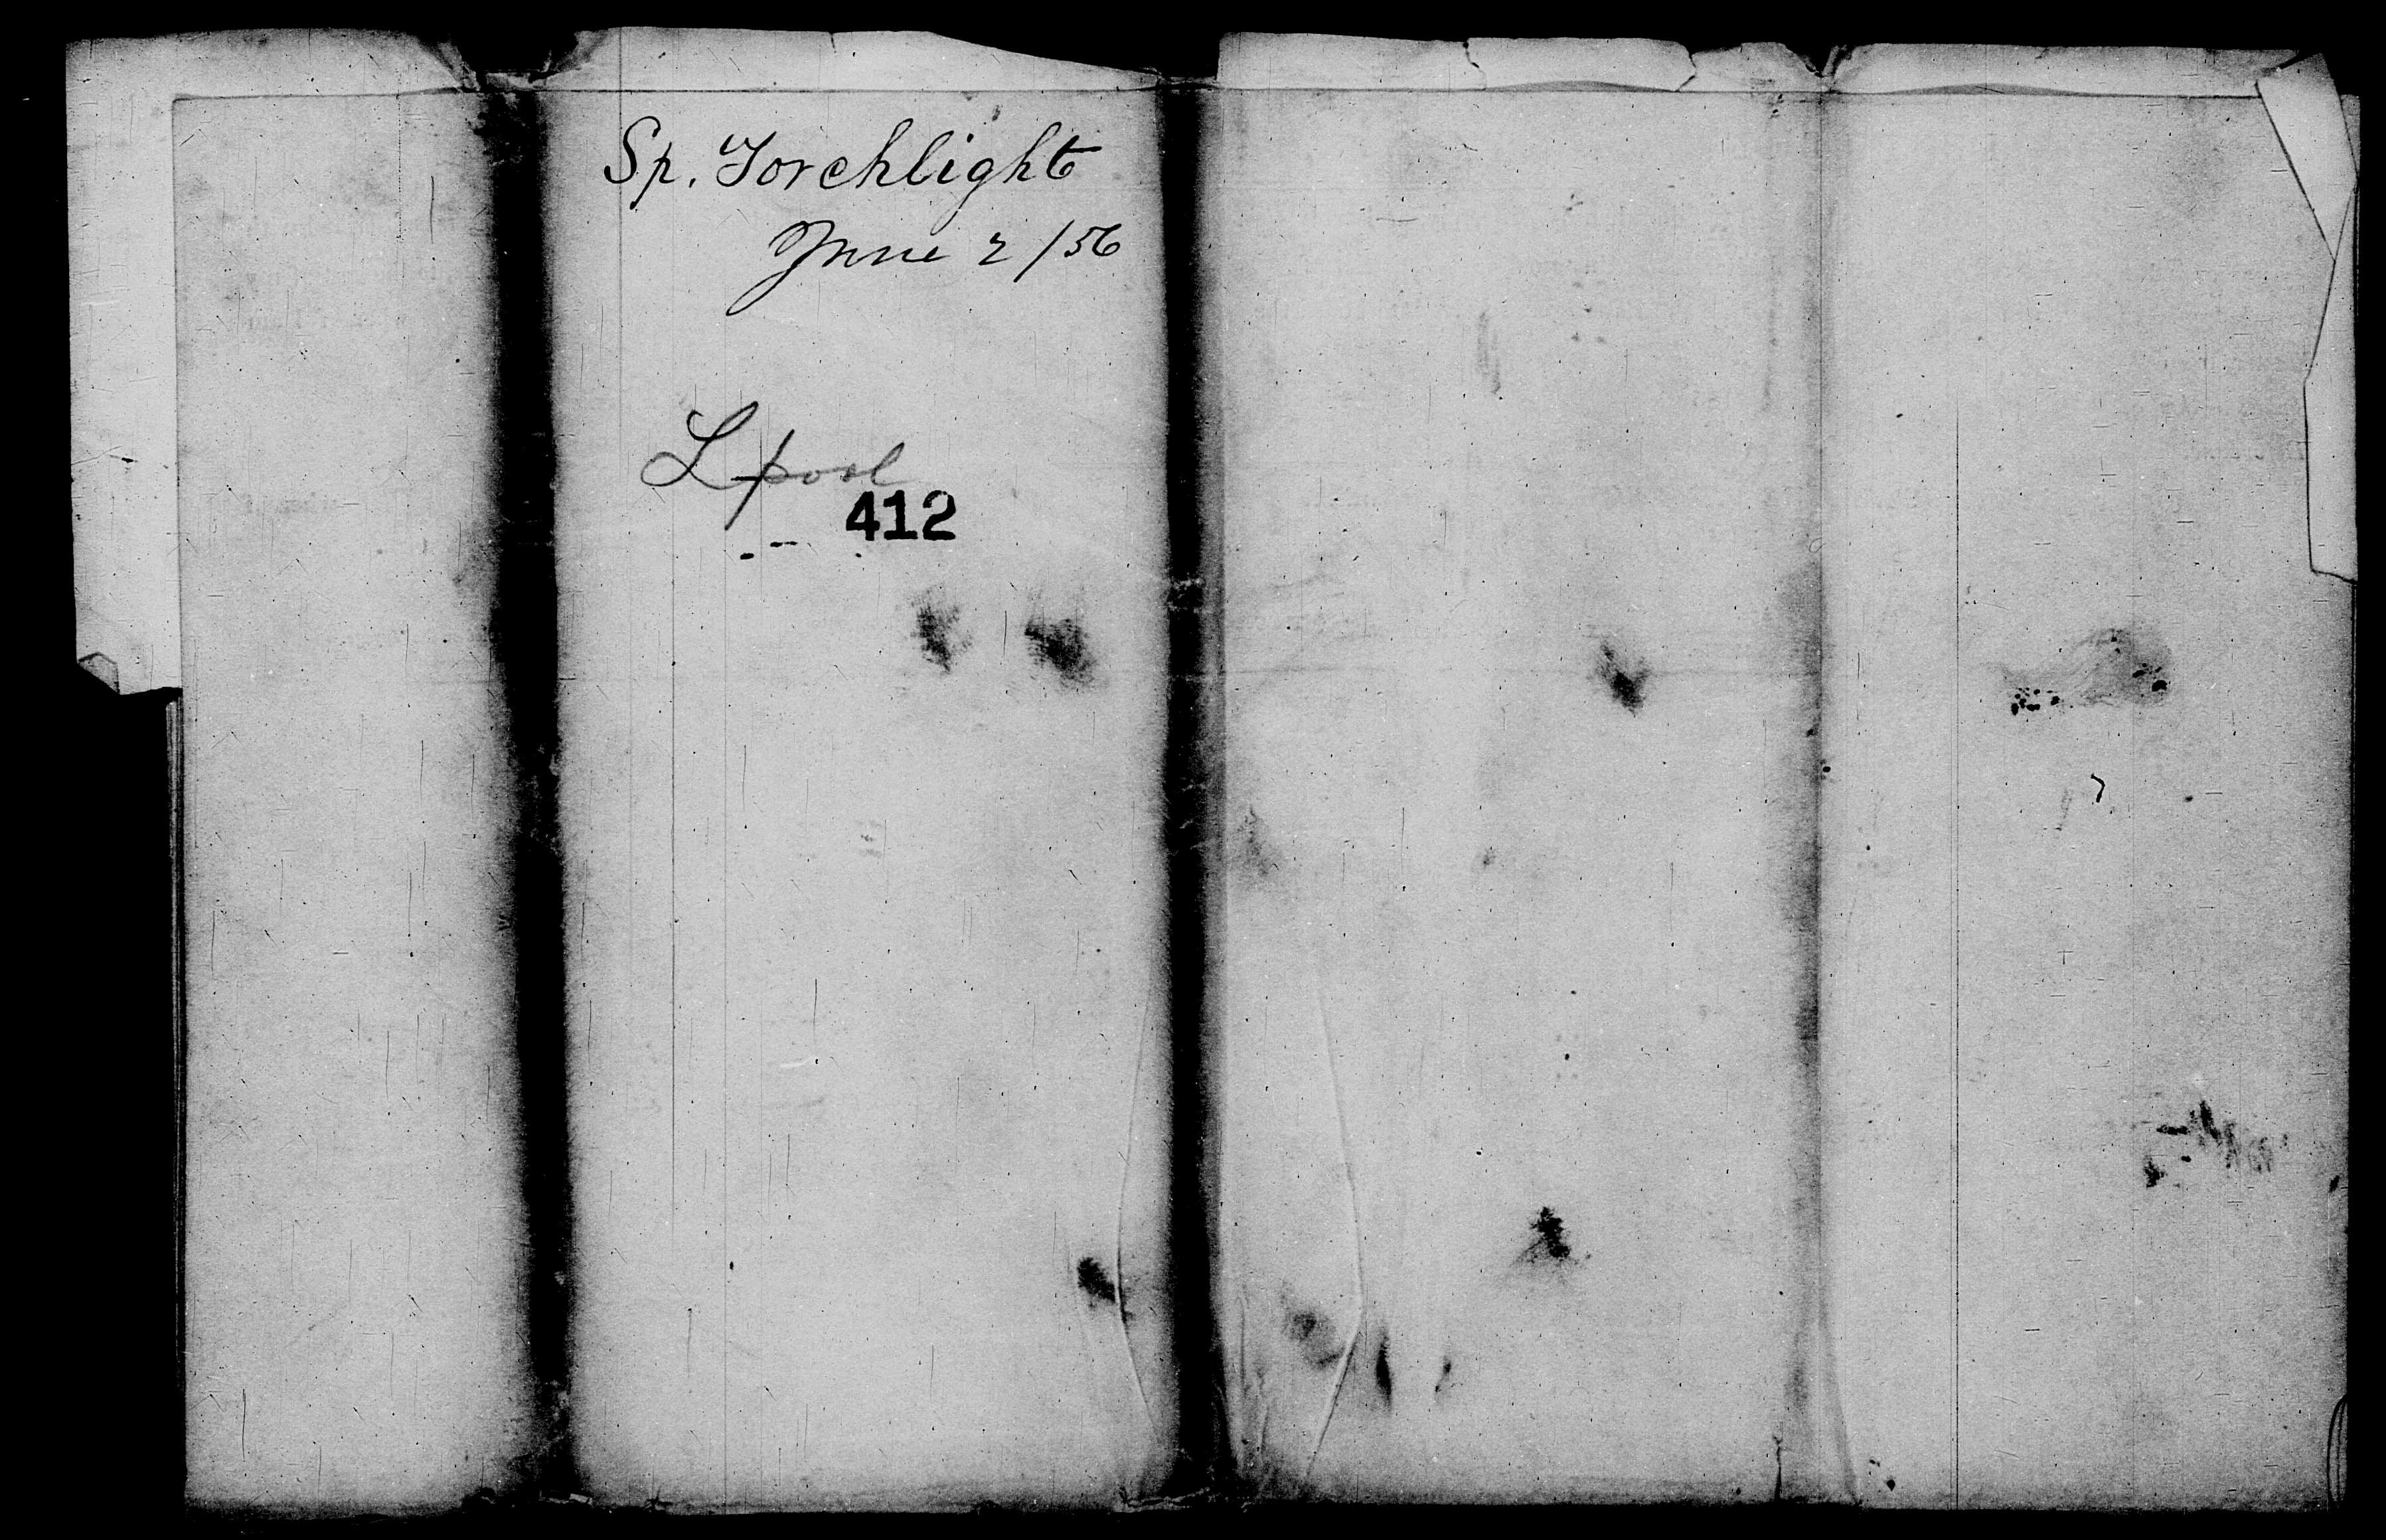 Sp. Torchlight
June 2/56
Lpool
412